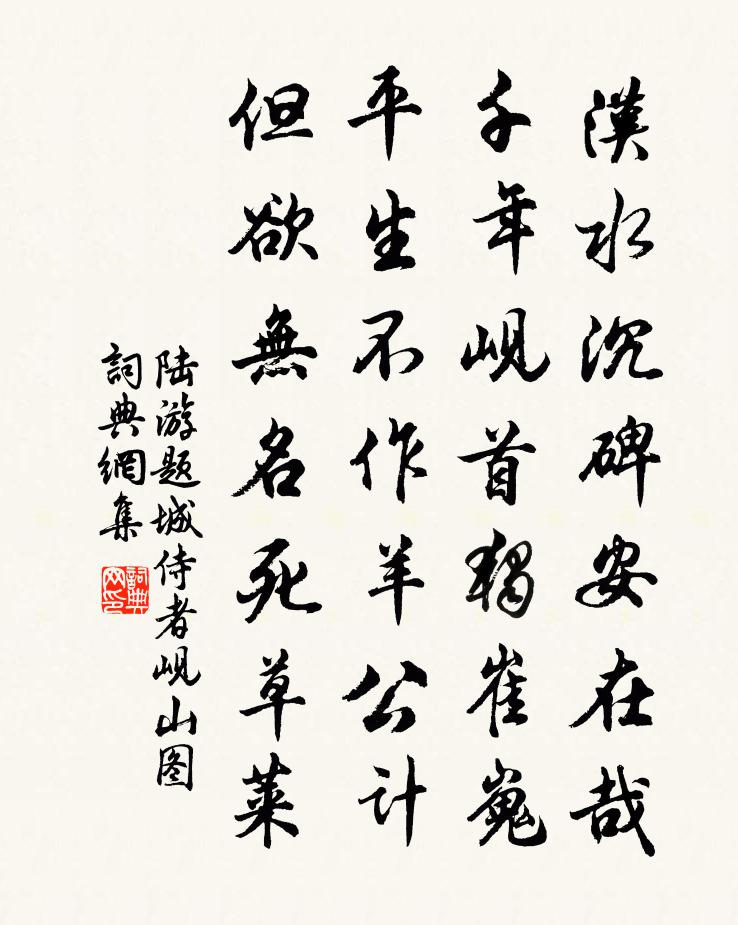 漢水沉碑安在哉
千年峴首獨崔嵬
平生不作羊公計
但欲無名死草萊
陆游题城侍者岘山图
詞典網集
詞典网印